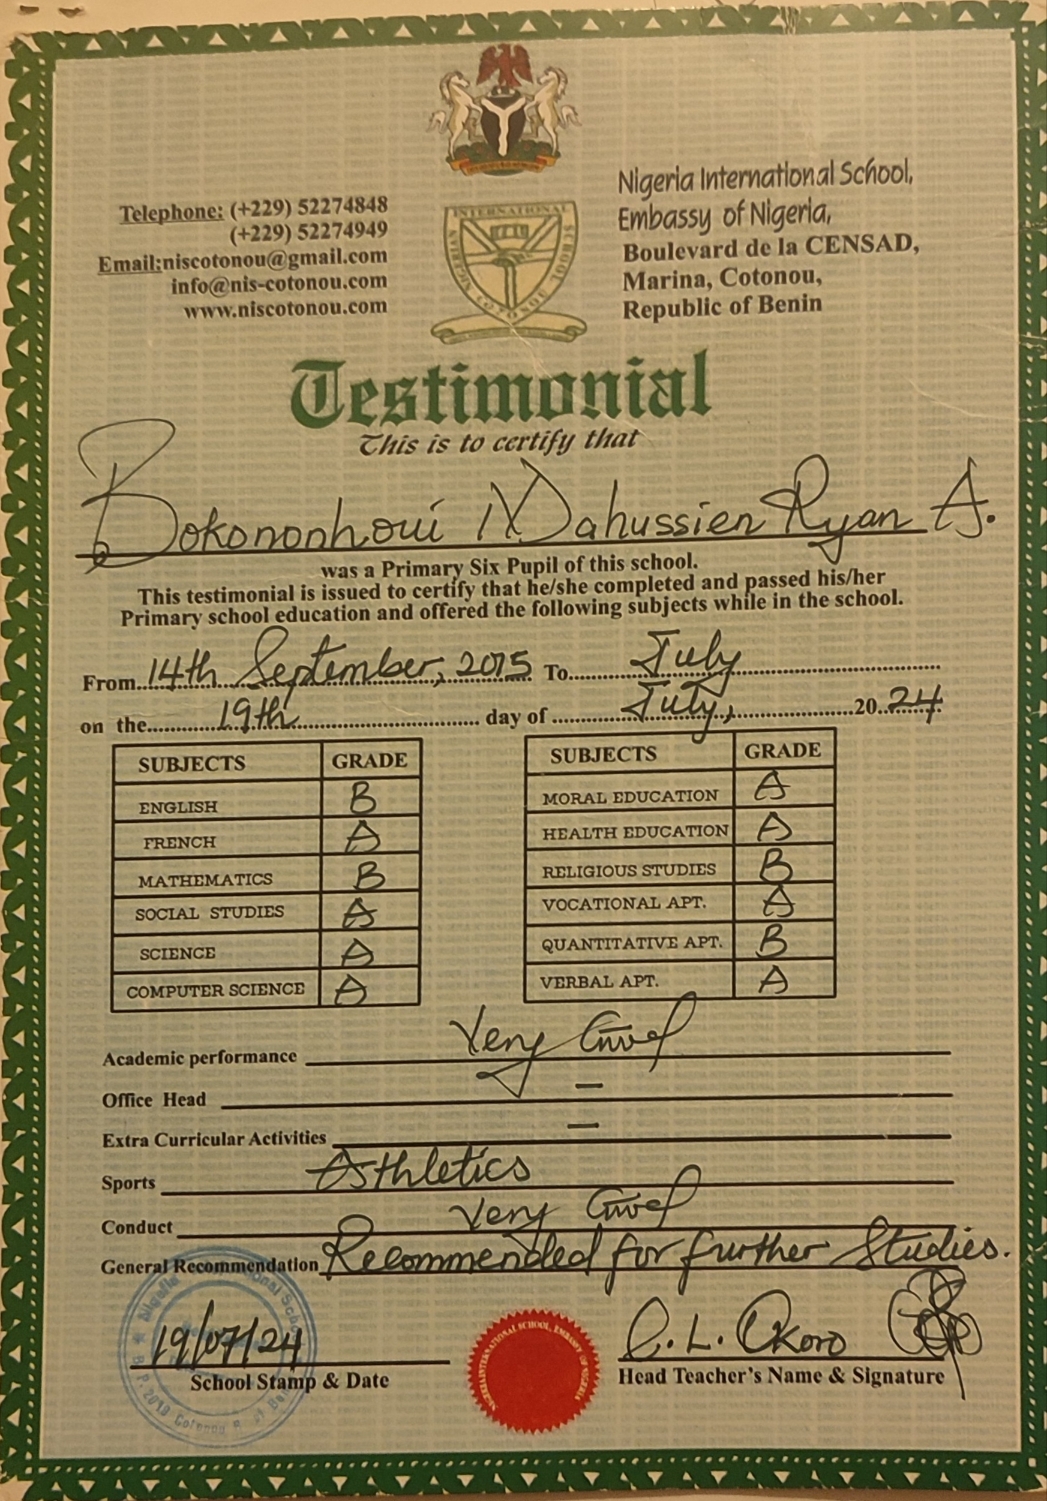 Telephone: (+229) 52274848
(+229) 52274949
Email:niscotonou@gmail.com
info@nis-cotonou.com
www.niscotonou.com
Nigeria International School,
Embassy of Nigeria,
Boulevard de la CENSAD,
Marina, Cotonou,
Republic of Benin
INTERNATIONAL
NIGERIAN
SCHOOL
COTONOU
Testimonial
This is to certify that
Bokononhoui Dahussien Ryan A.
was a Primary Six Pupil of this school.
This testimonial is issued to certify that he/she completed and passed his/her
Primary school education and offered the following subjects while in the school.
From 14th September, 2015 To July
on the 19th day of July, 2024
SUBJECTS GRADE
ENGLISH B
FRENCH A
MATHEMATICS B
SOCIAL STUDIES A
SCIENCE A
COMPUTER SCIENCE A
SUBJECTS GRADE
MORAL EDUCATION A
HEALTH EDUCATION A
RELIGIOUS STUDIES B
VOCATIONAL APT. A
QUANTITATIVE APT. B
VERBAL APT. A
Academic performance Very Good
Office Head —
Extra Curricular Activities —
Sports Athletics
Conduct Very Good
General Recommendation Recommended for further Studies.
19/07/24
School Stamp & Date
NIGERIA INTERNATIONAL SCHOOL, EMBASSY OF NIGERIA
C. L. Okoro
Head Teacher's Name & Signature